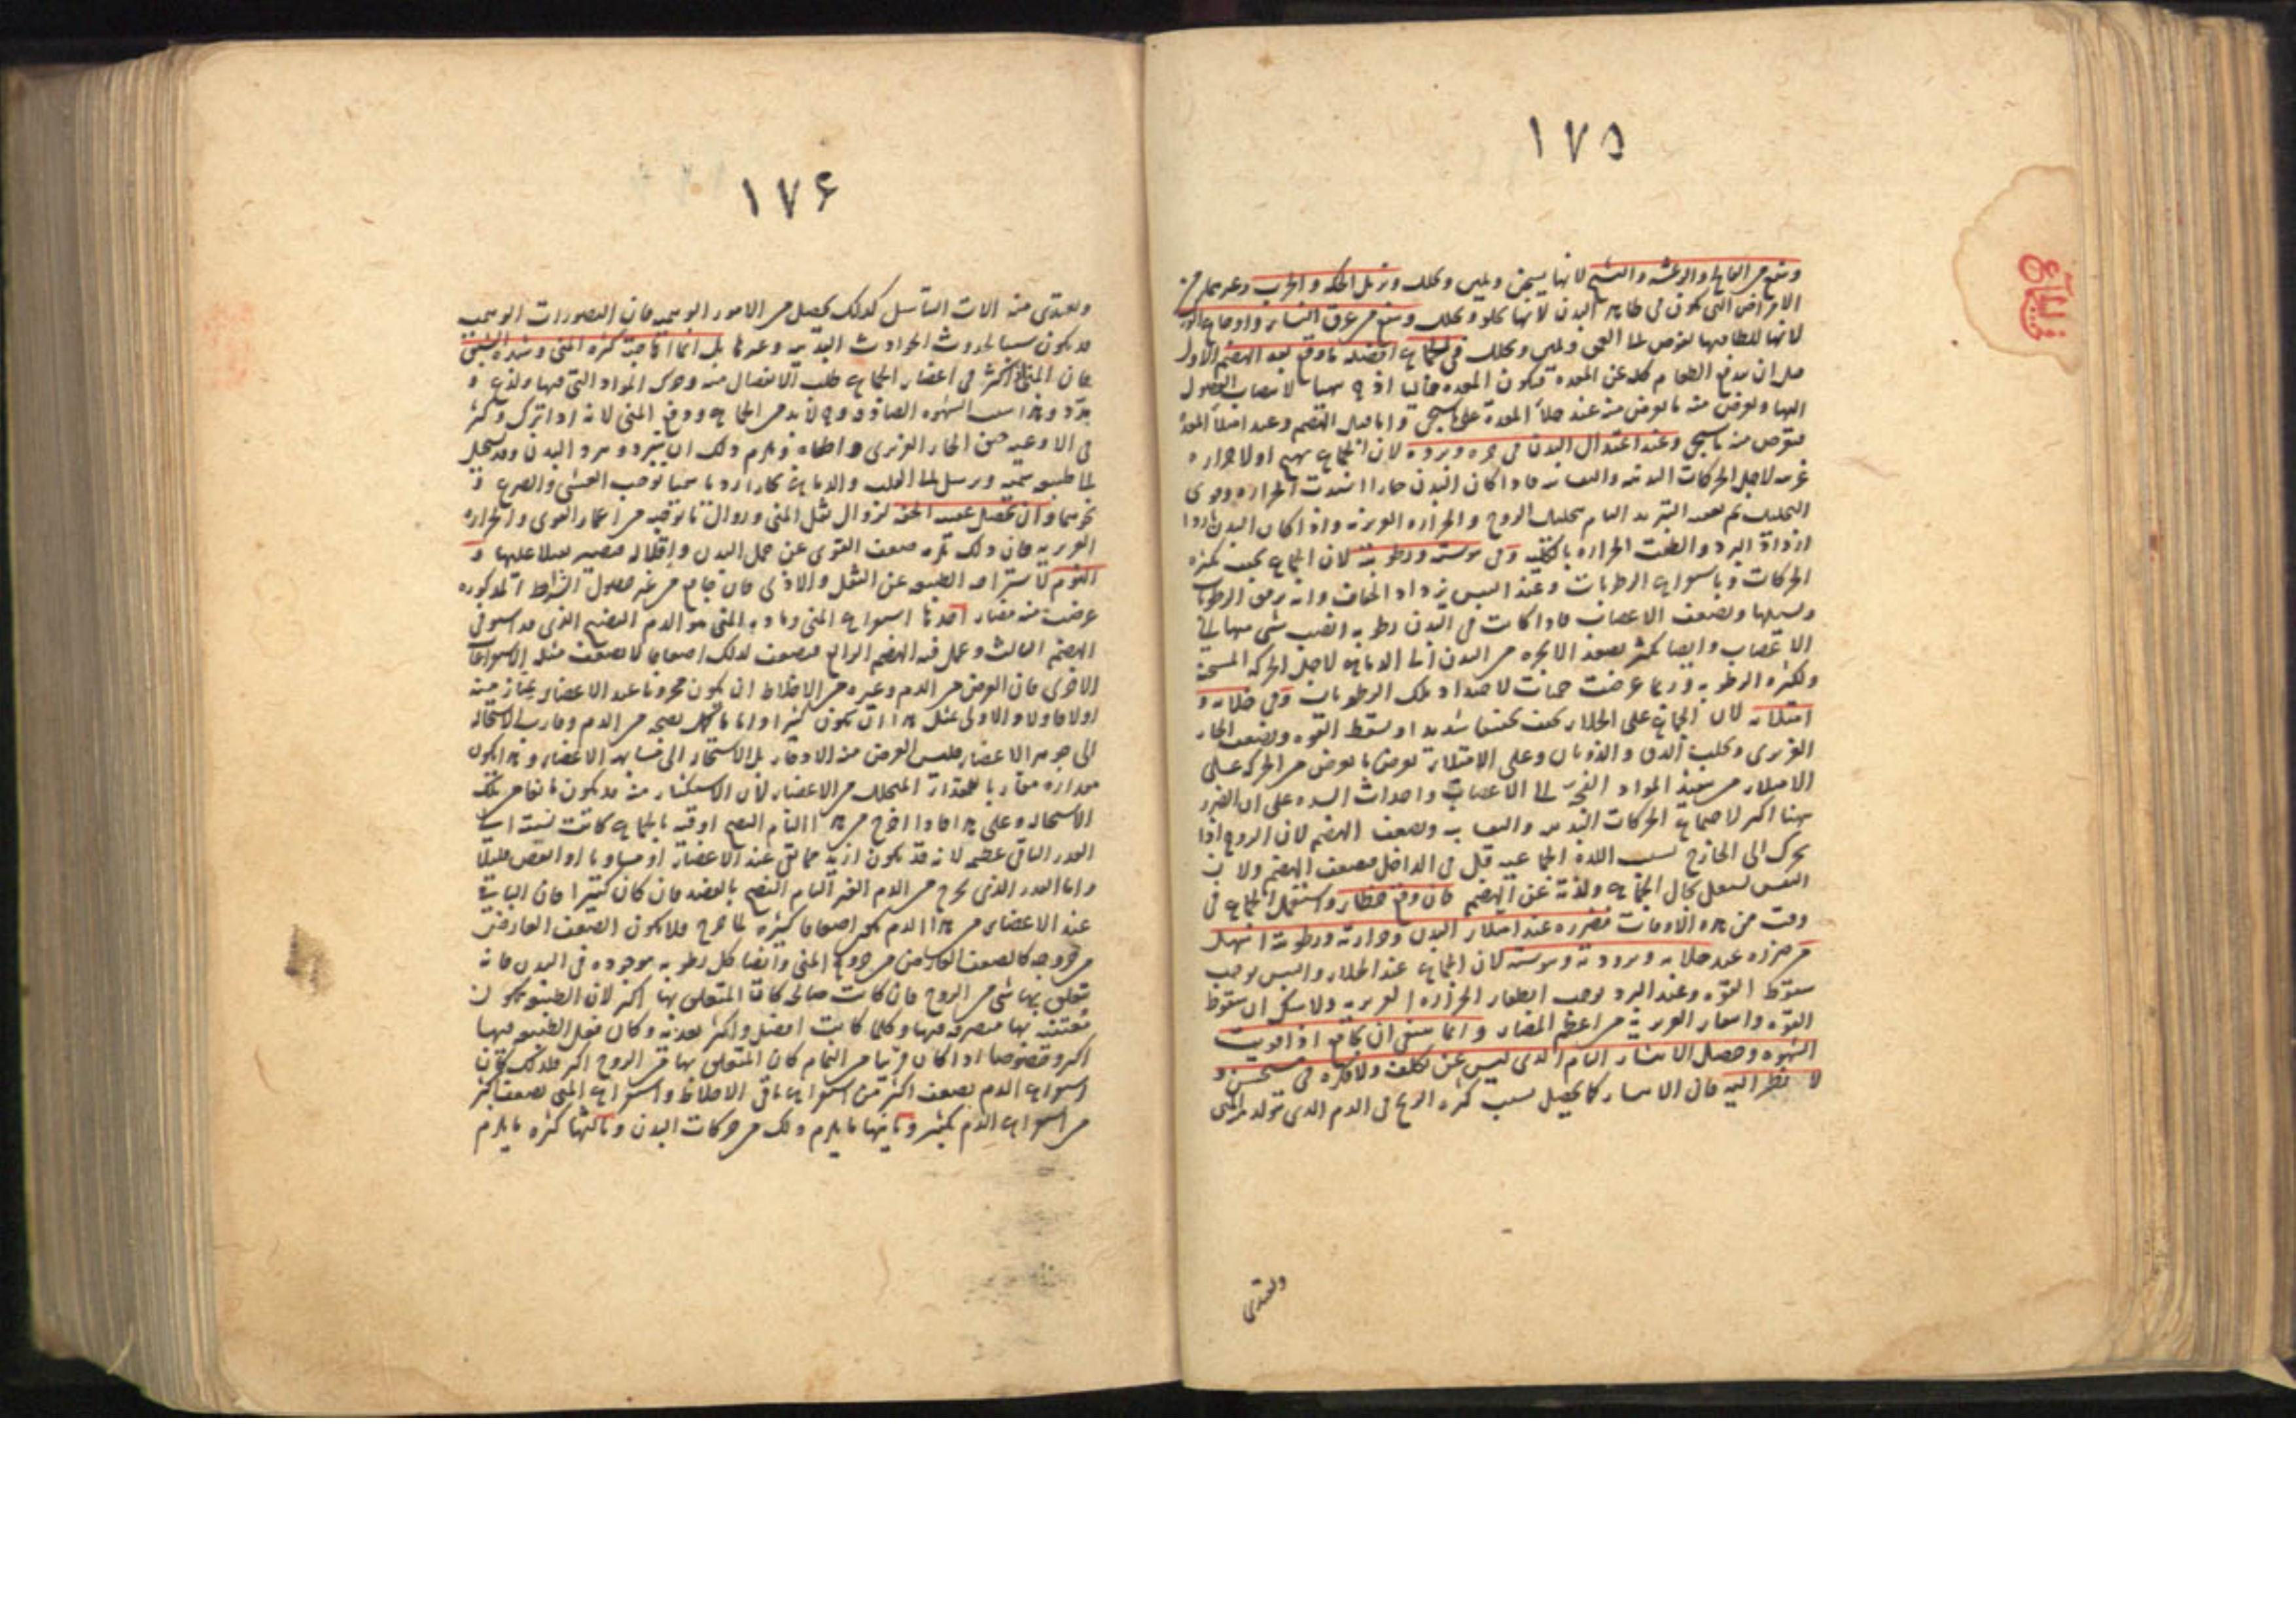 ١٧٥
في الجماع
وينفع من الفالج والرعشة والتشنج لانها يسخن ويلين ويحلل ويزيل الحكة والجرب وغيرهما من
الامراض التي تكون في ظاهر البدن لانها تجلو وتحلل وينفع من عرق النساء واوجاع
لانها للطافتها تغوص الى العمق ويلين ويحلل في الجماع افضله ما وقع بعد الهضم الاول
قبل ان يندفع الطعام كله عن المعدة فتكون المعدة خاليا اذ ح يتهيا لانصباب الفضول
اليها ويعرض منه ما يعرض منه عند خلأ المعدة على ما سيجئ واما قبل الهضم وعند امتلأ المعدة
فيعرض منه ما سيجئ وعند اعتدال البدن في حره وبرده لان الجماع يهيج اولا حرارة
غريبة لاجل الحركات البدنية والنفسانية فاذا كان البدن حارا اشتدت الحرارة وقوى
التحليل ثم بعد التبريد التام بتحليل الروح والحرارة الغريزية واذا كان البدن باردا
ازداد البرد وانطفت الحرارة بالكلية وفي يبوسته ورطوبته لان الجماع يجفف بكثرة
الحركات وباستفراغ الرطوبات وعند اليبس يزداد الجفاف وانه يرقق الرطوبات
ويسيلها ويضعف الاعصاب فاذا كانت في البدن رطوبة انصب شئ منها الى
الاعصاب وايضا يكثر تصعد الابخرة من البدن الى الدماغ لاجل الحركة المسخنة
ولكثرة الرطوبة وربما عرضت حميات لاحتداد تلك الرطوبات وفي خلائه و
امتلائه لان الجماع على الخلاء يجفف تجفيفا شديدا ويسقط القوة ويضعف الحار
الغريزي ويجلب الدق والذوبان وعلى الامتلاء يعرض ما يعرض من الحركة على
الامتلاء من تنفيذ المواد الفجة الى الاعصاب واحداث السدد على ان الضرر
ههنا اكبر لاجتماع الحركات البدنية والنفسانية ويضعف الهضم لان الروح اذا
تحرك الى الخارج بسبب اللذة الجماعية قل في الداخل فضعف الهضم ولان
النفس تشتغل بحال الجماع ولذته عن الهضم فان وقع خطاء واستعمل الجماع في
وقت من هذه الاوقات فضرره عند امتلاء البدن وحرارته ورطوبته اسهل
من ضرره عند خلائه وبرودته ويبوسته لان الجماع عند الخلاء واليبس يوجب
سقوط القوة وعند البرد يوجب انطفاء الحرارة الغريزية ولا شك ان سقوط
القوة وانطفاء الغريزية من اعظم المضار وانما ينبغي ان يجامع اذا قويت
الشهوة وحصل الانتشار التام الذي ليس عن تكلف ولا فكرة في مستحسن و
لا نظر اليه فان الانتشار كما يحصل بسبب كثرة الريح في الدم الذي يتولد منه المني
ويغتذي
١٧۶
ويغتذي منه الات التناسل كذلك يحصل من الامور الوهمية فان التصورات الوهمية
قد يكون سببا لحدوث الحوادث البدنية وغيرها بل انما هاجته كثرة المني وشدة الشبق
فان المني اذا كثر في اعضاء الجماع طلب الانفصال منه وحرك المواد التي فيها ولذع و
مدد وهذا سبب الشهوة الصادقة وح لابد من الجماع ودفع المني لانه اذا ترك وكثر
في الاوعية خنق الحار الغريزي واطفاه ويلزم ذلك ان يتبرد ويبرد البدن وقد يستحيل
الى طبيعة سمية ويرسل الى القلب والدماغ بخارا رديا سميا يوجب الغشي والصرع و
نحوهما وان يحصل عقيبه الخفة لزوال ثقل المني وزوال ما يوجبه من اغمار القوى والحرارة
الغريزية فان ذلك يلزمه ضعف القوى عن حمل البدن واقلاله فيصير ثقيلا عليها و
النوم لاستراحة الطبيعة عن الثقل والاذى فان جامع من غير حصول الشرائط المذكورة
عرضت منه مضار احدها استفراغ المني ومادة المني هو الدم النضيج الذي قد استوفى
الهضم الثالث وعمل فيه الهضم الرابع فيضعف لذلك اضعافا لا يضعف مثله الاستفراغات
الاخرى فان العوض من الدم وغيره من الاخلاط ان يكون مخزونا عند الاعضاء يمتاز منه
اولا فاولا والاولى بمثل هذا ان يكون كثيرا واما ما كمل نضجه من الدم وقارب الاستحالة
الى جوهر الاعضاء فليس الغرض منه الادخار بل الاستحالة الى مشابهة الاعضاء وهذا يكون
مقداره مقاربا لمقدار المتحلل من الاعضاء لان الاستكثار منه قد يكون مانعا من تلك
الاستحالة وعلى هذا فاذا اخرج من هذا التام النضج اوقية بالجماع كانت نسبته الى
القدر الباقي عظيمة لانه قد يكون ازيد مما بقى عند الاعضاء او مساويا او انقص قليلا
واما القدر الذي يخرج من الدم الغير التام النضج بالفصد فان كان كثيرا فان الباقي
عند الاعضاء من هذا الدم يكون اضعافا كثيرة لما خرج فلا يكون الضعف العارض
من خروجه كالضعف العارض من خروج المني وايضا كل رطوبة موجودة في البدن فانه
يتعلق بها شئ من الروح فان كانت صالحة كان المتعلق بها اكثر لان الطبيعة تكون
معتنية بها متصرفة فيها وكلما كانت افضل واكثر تغذية وكان فعل الطبيعة فيها
اكثر وخصوصا اذا كان قريبا من التمام كان المتعلق بها من الروح اكثر فلذلك كان
استفراغ الدم يضعف اكثر من استفراغ باقي الاخلاط واستفراغ المني يضعف اكثر
من استفراغ الدم بكثير وثانيها ما يلزم ذلك من حركات البدن وثالثها كثرة ما يلزم